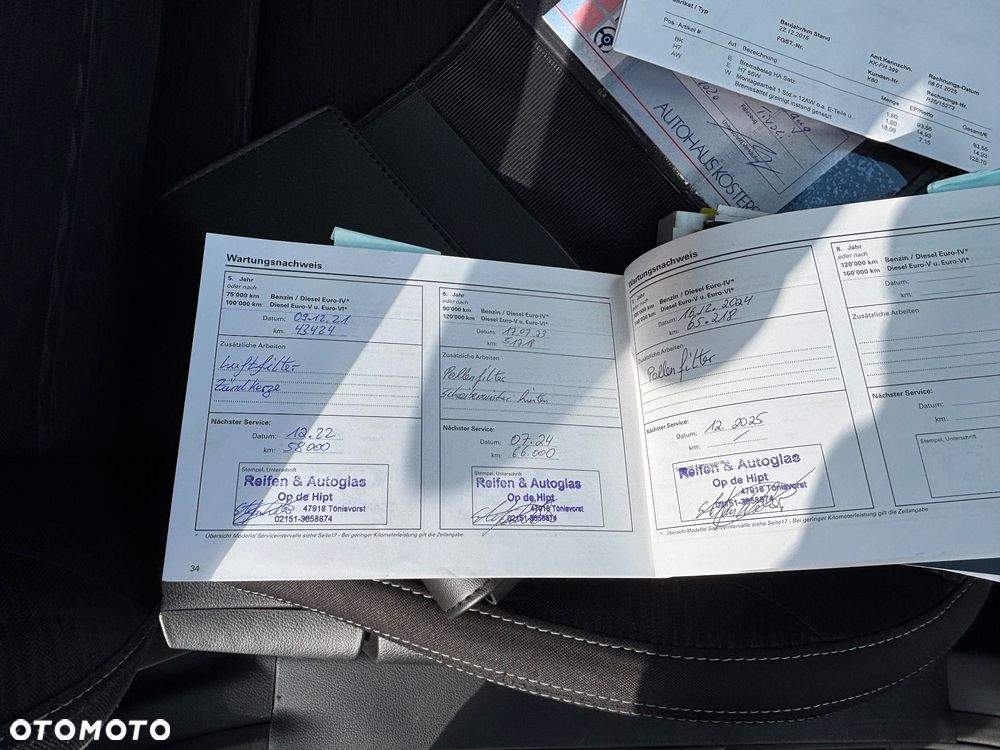 Fabrikat / Typ
Baujahr/km Stand
22.12.2016
FGST.-Nr.
Amt.Kennzchn.
KK-FH 399
Kunden-Nr.
K80
Rechnungs-Datum
08.01.2025
Rechnungs-Nr.
R25/15273
Pos. Artikel # Art Bezeichnung Menge EP/Netto Gesamt/€
BK E Bremsbelag HA Satz 1,00 93,56 93,56
H7 E H7 55W 1,00 14,93 14,93
AW W Montagearbeit 1 Std.= 12AW o.a. E-Teile u. 18,00 7,15 128,70
Bremssattel greinigt instand gesetzt
Tivoli
AUTOHAUS KÖSTERS
Wartungsnachweis
5. Jahr
oder nach
75'000 km Benzin / Diesel Euro-IV*
100'000 km Diesel Euro-V u. Euro-VI*
Datum: 09.12.21
km: 43424
Zusätzliche Arbeiten
Luftfilter
Zündkerze
Nächster Service:
Datum: 12.22
km: 58000
Stempel, Unterschrift
Reifen & Autoglas
Op de Hipt
47918 Tönisvorst
02151-3658874
6. Jahr
oder nach
90'000 km Benzin / Diesel Euro-IV*
120'000 km Diesel Euro-V u. Euro-VI*
Datum: 17.07.23
km: 51718
Zusätzliche Arbeiten
Pollenfilter
Scheibenwischer hinten
Nächster Service:
Datum: 07.24
km: 66.000
Stempel, Unterschrift
Reifen & Autoglas
Op de Hipt
47918 Tönisvorst
02151-3658874
* Übersicht Modelle/ Serviceintervalle siehe Seite17 - Bei geringer Kilometerleistung gilt die Zeitangabe
34
Wartungsnachweis
Jahr
oder nach
Benzin / Diesel Euro-IV*
Diesel Euro-V u. Euro-VI*
Datum: 16.12.2024
km: 65.218
Zusätzliche Arbeiten
Pollenfilter
Nächster Service:
Datum: 12.2025
km: /
Reifen & Autoglas
Op de Hipt
47918 Tönisvorst
02151-3658874
8. Jahr
oder nach
120'000 km Benzin / Diesel Euro-IV*
160'000 km Diesel Euro-V u. Euro-VI*
Datum:
km:
Zusätzliche Arbeiten
Nächster Service:
Datum:
km:
Stempel, Unterschrift
* Übersicht Modelle/ Serviceintervalle siehe Seite17 - Bei geringer Kilometerleistung gilt die Zeitangabe
OTOMOTO